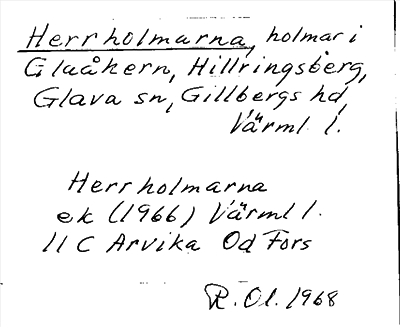 Herrholmarna, holmar i
Gluåkern, Hillringsberg,
Glava sn, Gillbergs hd,
Värml l.
Herrholmarna
ek (1966) Värml l.
11 C Arvika Od Fors
R. Ol. 1968